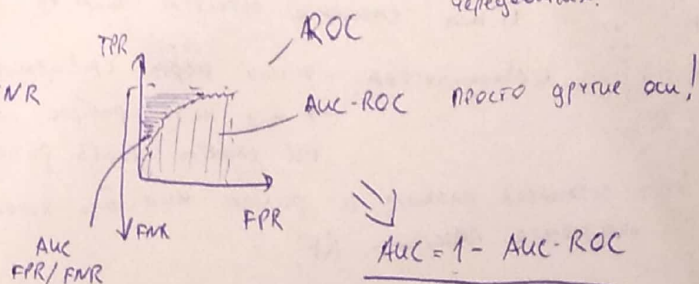 чередование.
TPR
ROC
NR
AUC-ROC просто другие оси!
FNR
FPR
AUC
FPR/FNR
AUC = 1 - AUC-ROC